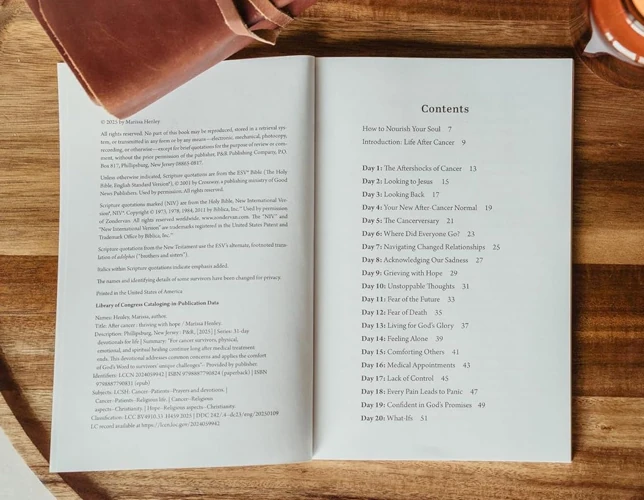 © 2025 by Marissa Henley
All rights reserved. No part of this book may be reproduced, stored in a retrieval sys-
tem, or transmitted in any form or by any means—electronic, mechanical, photocopy,
recording, or otherwise—except for brief quotations for the purpose of review or com-
ment, without the prior permission of the publisher, P&R Publishing Company, P.O.
Box 817, Phillipsburg, New Jersey 08865-0817.
Unless otherwise indicated, Scripture quotations are from the ESV® Bible (The Holy
Bible, English Standard Version®), © 2001 by Crossway, a publishing ministry of Good
News Publishers. Used by permission. All rights reserved.
Scripture quotations marked (NIV) are from the Holy Bible, New International Ver-
sion®, NIV® Copyright © 1973, 1978, 1984, 2011 by Biblica, Inc.™ Used by permission
of Zondervan. All rights reserved worldwide. www.zondervan.com. The "NIV" and
"New International Version" are trademarks registered in the United States Patent and
Trademark Office by Biblica, Inc.™
Scripture quotations from the New Testament use the ESV's alternate, footnoted trans-
lation of adelphoi ("brothers and sisters").
Italics within Scripture quotations indicate emphasis added.
The names and identifying details of some survivors have been changed for privacy.
Printed in the United States of America
Library of Congress Cataloging-in-Publication Data
Names: Henley, Marissa, author.
Title: After cancer : thriving with hope / Marissa Henley.
Description: Phillipsburg, New Jersey : P&R, [2025] | Series: 31-day
devotionals for life | Summary: "For cancer survivors, physical,
emotional, and spiritual healing continue long after medical treatment
ends. This devotional addresses common concerns and applies the comfort
of God's Word to survivors' unique challenges"-- Provided by publisher.
Identifiers: LCCN 2024059942 | ISBN 9798887790824 (paperback) | ISBN
9798887790831 (epub)
Subjects: LCSH: Cancer--Patients--Prayers and devotions. |
Cancer--Patients--Religious life. | Cancer--Religious
aspects--Christianity. | Hope--Religious aspects--Christianity.
Classification: LCC BV4910.33 .H459 2025 | DDC 242/.4--dc23/eng/20250109
LC record available at https://lccn.loc.gov/2024059942
Contents
How to Nourish Your Soul 7
Introduction: Life After Cancer 9
Day 1: The Aftershocks of Cancer 13
Day 2: Looking to Jesus 15
Day 3: Looking Back 17
Day 4: Your New After-Cancer Normal 19
Day 5: The Cancerversary 21
Day 6: Where Did Everyone Go? 23
Day 7: Navigating Changed Relationships 25
Day 8: Acknowledging Our Sadness 27
Day 9: Grieving with Hope 29
Day 10: Unstoppable Thoughts 31
Day 11: Fear of the Future 33
Day 12: Fear of Death 35
Day 13: Living for God's Glory 37
Day 14: Feeling Alone 39
Day 15: Comforting Others 41
Day 16: Medical Appointments 43
Day 17: Lack of Control 45
Day 18: Every Pain Leads to Panic 47
Day 19: Confident in God's Promises 49
Day 20: What-Ifs 51